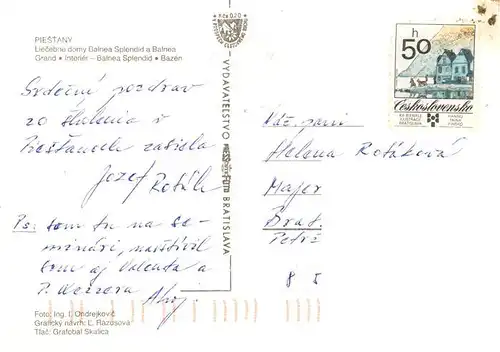 PIEŠŤANY
Liečebné domy Balnea Splendid a Balnea
Grand • Interiér – Balnea Splendid • Bazén
Srdečný pozdrav
zo
Piešťanoch zasiela
Jozef
Roták
Ps: som tu na se-
minári, navštívil
som aj Valenta a
P.
Ahoj
Foto: Ing. I. Ondrejkovič
Grafický návrh: Ľ. Rázusová
Tlač: Grafobal Skalica
Kčs 0,20
VYDAVATEĽSTVO BRATISLAVA
50 h
Československo
XI. BIENÁLE
ILUSTRÁCIÍ
BRATISLAVA
Vdž. pani
Helena Rotáková
Major
Brat
Petrž
8 5